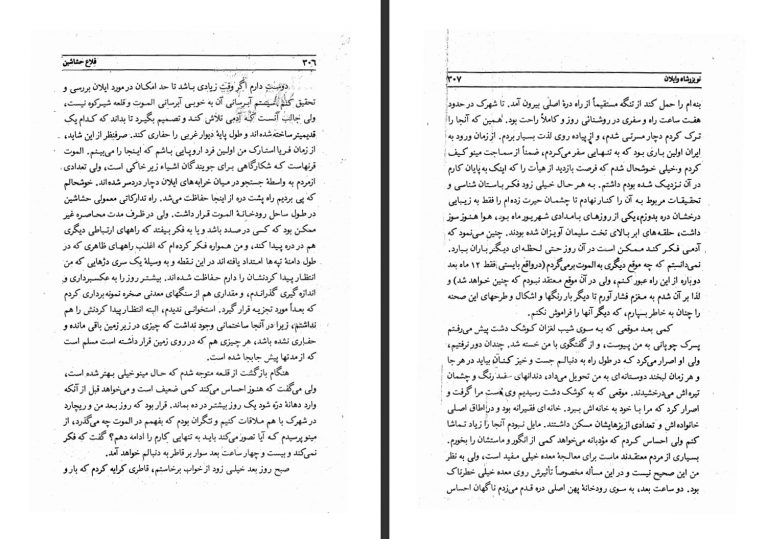 ۳۰۶ قلاع حشاشین
دوست دارم اگر وقت زیادی باشد تا حد امکان در مورد ایلان بررسی و
تحقیق کنم سیستم آبرسانی آن به خوبی آبرسانی الموت و قلعه شیرکوه نیست،
ولی جالب آنست که آدمی تلاش کند و تصمیم بگیرد تا بداند که کدام یک
قدیمیتر ساخته شده‌اند و طول پایهٔ دیوار غربی را حفاری کند. صرفنظر از این شاید،
از زمان فریا استارک من اولین فرد اروپایی باشم که اینجا را می‌بینم. الموت
قرنهاست که شکارگاهی برای جویندگان اشیاء زیر خاکی است، ولی تعدادی
ازمردم به واسطهٔ جستجو در میان خرابه‌های ایلان دچار دردسر شده‌اند. خوشحالم
که پی بردیم راه پشت دره از اینجا حفاظت می‌شد. راه تدارکاتی معمولی حشاشین
در طول ساحل رودخانهٔ الموت قرار داشت. ولی در ظرف مدت محاصره غیر
ممکن بود که کسی در صدد باشد و یا به فکر بیفتد که راههای ارتباطی دیگری
هم در دره پیدا کند، و من همواره فکر کرده‌ام که اغلب پناهگاه‌های ظاهری که در
طول دامنهٔ تپه‌ها امتداد یافته‌اند در این نقطه و به وسیلهٔ یک سری دژهایی که من
انتظار پیدا کردنشان را دارم حفاظت شده‌اند. بیشتر روز را به عکسبرداری و
اندازه گیری گذراندم، و مقداری هم از سنگهای معدنی صخره نمونه برداری کردم
که بعداً مورد تجزیه قرار گیرد. استخوانی ندیدم، البته انتظار پیدا کردنش را هم
نداشتم، زیرا در آنجا ساختمانی وجود نداشت که چیزی در زیر زمین باقی مانده و
حفاری نشده باشد، هر چیزی هم که در روی زمین قرار داشته است مسلم است
که از مدتها پیش جابجا شده است.
هنگام بازگشت از قلعه متوجه شدم که حال مینو خیلی بهتر شده است،
ولی می‌گفت که هنوز احساس می‌کند کمی ضعیف است و می‌خواهد قبل از آنکه
وارد دهانهٔ درّه شود یک روز بیشتر در ده بماند. قرار بود که روز بعد من و ریچارد
در شهرک با هم ملاقات کنیم و نگران بودم که بفهمم در الموت چه می‌گذرد، از
مینو پرسیدم که آیا تصور می‌کند باید به تنهایی کارم را ادامه دهم؟ گفت که فکر
نمی‌کند و بیست و چهار ساعت بعد سوار بر قاطر به دنبالم خواهد آمد.
صبح روز بعد خیلی زود از خواب برخاستم، قاطری کرایه کردم که بار و
نویزرشاه و ایلان ۳۰۷
بنه‌ام را حمل کند از تنگه مستقیماً از راه درهٔ اصلی بیرون آمد. تا شهرک در حدود
هفت ساعت راه و سفری در روشنائی روز و کاملاً راحت بود. همین که آنجا را
ترک کردم دچار مسرتی شدم، و از پیاده روی لذت بسیار بردم. از زمان ورود به
ایران اولین باری بود که به تنهایی سفر می‌کردم، ضمناً از سماجت مینو کیف
کردم و خیلی خوشحال شدم که فرصت بازدید از هیأت را که اینک به پایان کارم
در آن نزدیک شده بودم داشتم. به هر حال خیلی زود فکر باستان شناسی و
تحقیقات مربوط به آن را کنار نهادم تا چشمان حیرت زده‌ام را فقط به زیبایی
درخشان دره بدوزم، یکی از روزهای بامدادی شهریور ماه بود، هوا هنوز سوز
داشت، حلقه‌های ابر بالای تخت سلیمان آویزان شده بودند. چنین می‌نمود که
آدمی فکر کند ممکن است در آن روز حتی لحظه‌ای دیگر باران ببارد.
نمی‌دانستم که چه موقع دیگری به الموت برمی‌گردم (درواقع بایستی فقط ۱۲ ماه بعد
دوباره از این راه عبور کنم، ولی در آن موقع معتقد نبودم که چنین خواهد شد) و
لذا بر آن شدم به مغزم فشار آورم تا دیگر بار رنگها و اشکال و طرحهای این صحنه
را چنان به خاطر بسپارم، که دیگر آنها را فراموش نکنم.
کمی بعد موقعی که به سوی شیب لغزان کوشک دشت پیش می‌رفتم
پسرک چوپانی به من پیوست، و از گفتگوی با من خسته شد. چندان دور نرفتیم،
ولی او اصرار می‌کرد که در طول راه به دنبالم جست و خیز کنان بیاید در هر جا
و هر زمان لبخند دوستانه‌ای به من تحویل می‌داد، دندانهای سفید رنگ و چشمان
تیره‌اش می‌درخشیدند. موقعی که به کوشک دشت رسیدیم وی دست مرا گرفت و
اصرار کرد که مرا با خود به خانه‌اش ببرد. خانه‌ای فقیرانه بود و در اطاق اصلی
خانواده‌اش و تعدادی از بزهایشان مسکن داشتند. مایل نبودم آنجا را زیاد تماشا
کنم ولی احساس کردم که مؤدبانه می‌خواهد کمی از انگور و ماستشان را بخورم.
بسیاری از مردم معتقدند ماست برای معالجهٔ معده خیلی مفید است، ولی به نظر
من این صحیح نیست و در این مسأله مخصوصاً تأثیرش روی معده خیلی خطرناک
بود. دو ساعت بعد، به سوی رودخانهٔ پهن اصلی دره قدم می‌زدم ناگهان احساس